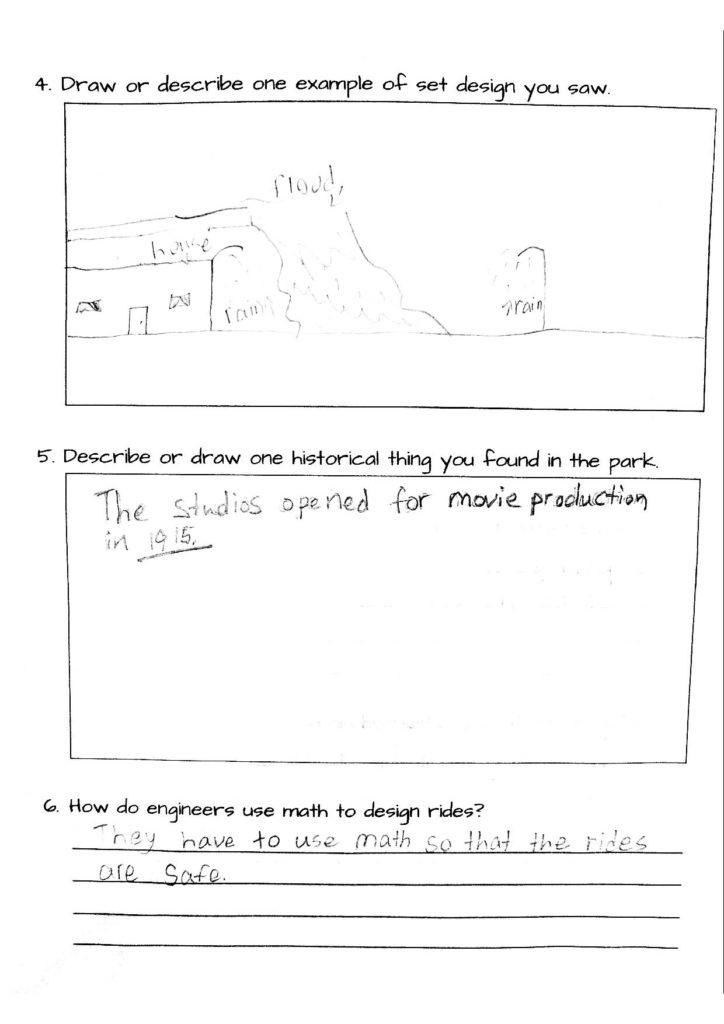 4. Draw or describe one example of set design you saw.
flood,
house
rain
rain
5. Describe or draw one historical thing you found in the park.
The studios opened for movie production
in 1915.
6. How do engineers use math to design rides?
They have to use math so that the rides
are safe.